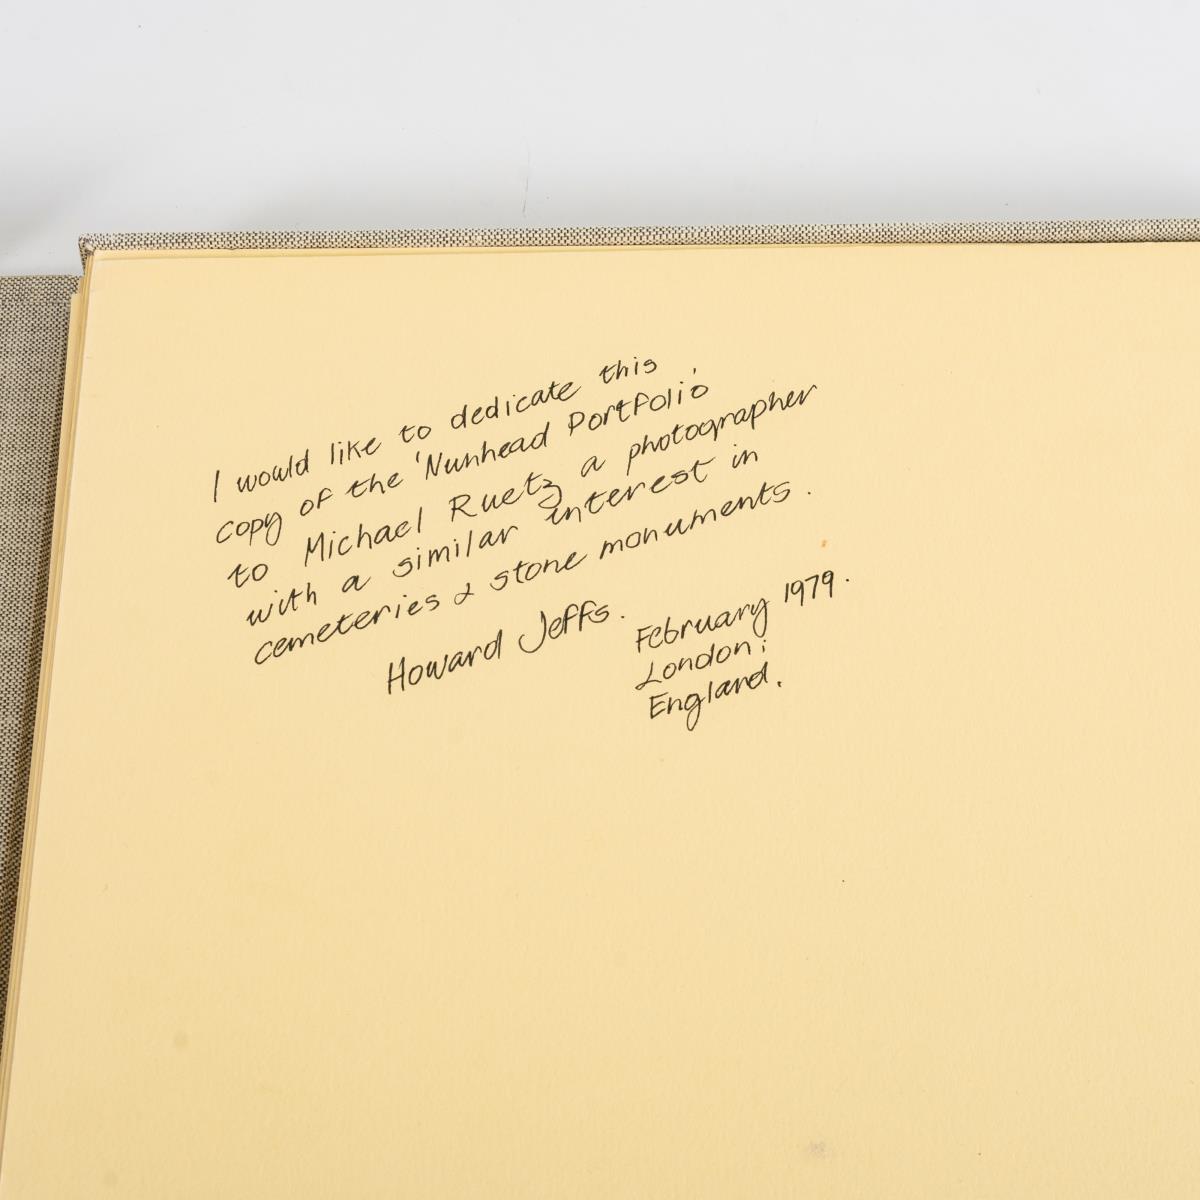 I would like to dedicate this
copy of the 'Nunhead Portfolio'
to Michael Ruetz a photographer
with a similar interest in
cemeteries & stone monuments.
Howard Jeffs.
February 1979.
London;
England.